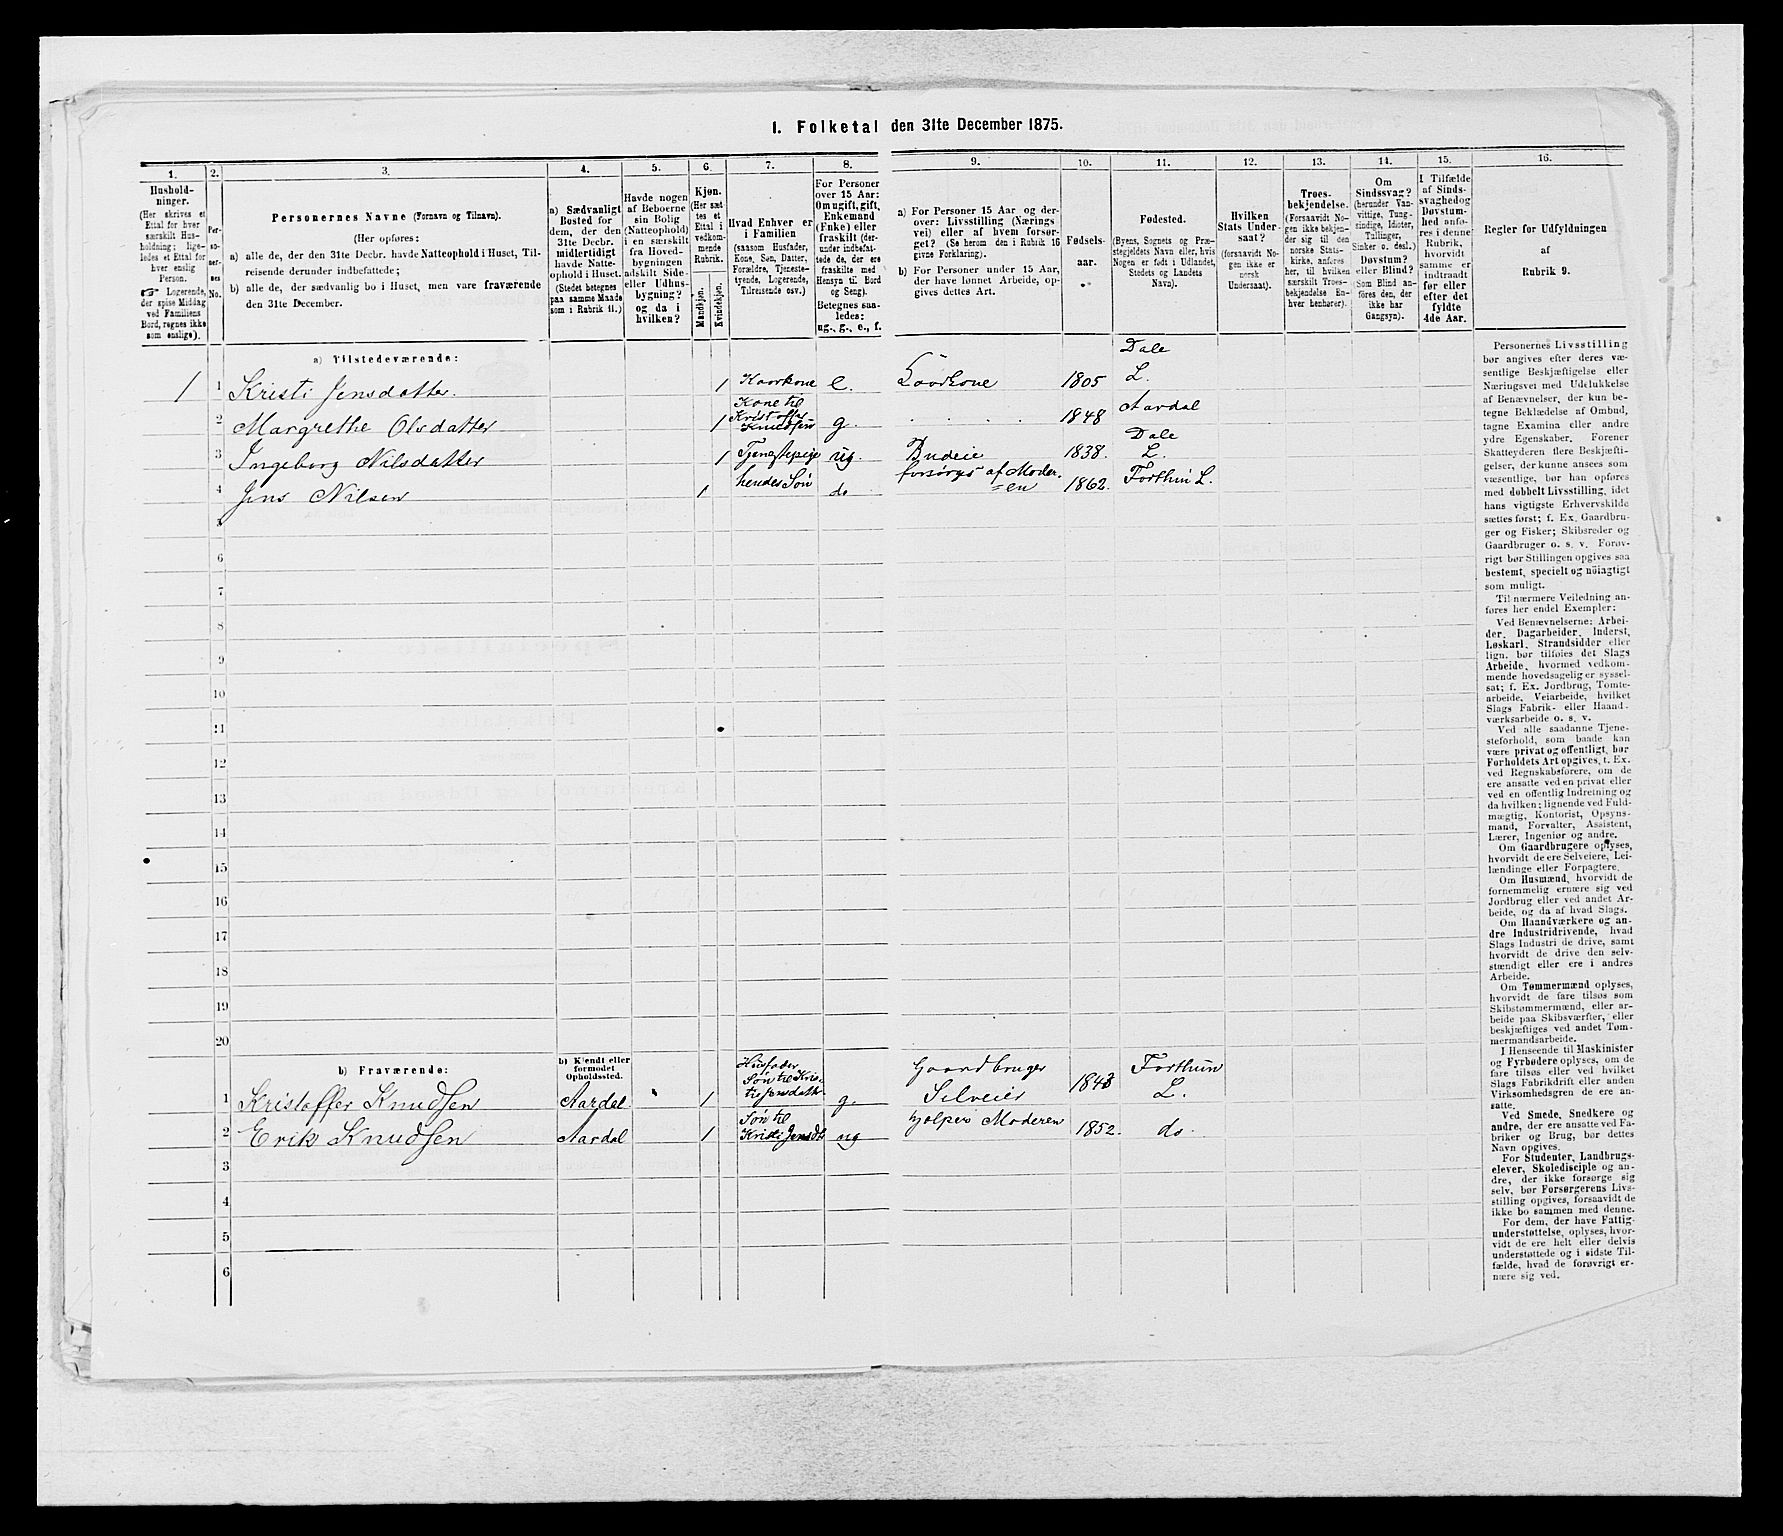 I. Folketal den 31te December 1875.
1.
Hushold-
ninger.
(Her skrives et
Ettal for hver
særskilt Hus-
holdning; lige-
ledes et Ettal for
hver enslig
Person.
☞ Logerende,
der spise Middag
ved Familiens
Bord, regnes ikke
som enslige).
2.
Per-
so-
ner-
nes
No.
3.
Personernes Navne (Fornavn og Tilnavn).
(Her opføres:
a) alle de, der den 31te Decbr. havde Natteophold i Huset, Til-
reisende derunder indbefattede;
b) alle de, der sædvanlig bo i Huset, men vare fraværende
den 31te December.
4.
a) Sædvanligt
Bosted for
dem, der den
31te Decbr.
midlertidigt
havde Natte-
ophold i Huset.
(Stedet betegnes
paa samme Maade
som i Rubrik 11.)
5.
Havde nogen
af Beboerne
sin Bolig
(Natteophold)
i en særskilt
fra Hoved-
bygningen
adskilt Side-
eller Udhus-
bygning?
og da i
hvilken?
6.
Kjøn.
(Her sæt-
tes et
Ettal i
vedkom-
mende
Rubrik.
Mandkjøn.
Kvindekjøn.
7.
Hvad Enhver er
i Familien
(saasom Husfader,
Kone, Søn, Datter,
Forældre, Tjeneste-
tyende, Logerende,
Tilreisende osv.)
8.
For Personer
over 15 Aar:
Om ugift, gift,
Enkemand
(Enke) eller
fraskilt (der-
under indbefat-
tede de, der ere
fraskilte med
Hensyn til Bord
og Seng).
Betegnes saa-
ledes:
ug., g., e., f.
9.
a) For Personer 15 Aar og der-
over: Livsstilling (Nærings-
vei) eller af hvem forsør-
get? (Se herom den i Rubrik 16
givne Forklaring).
b) For Personer under 15 Aar,
der have lønnet Arbeide, op-
gives dettes Art.
10.
Fødsels-
aar.
11.
Fødested.
(Byens, Sognets og Præ-
stegjeldets Navn eller, hvis
Nogen er født i Udlandet,
Stedets og Landets
Navn).
12.
Hvilken
Stats Under-
saat?
(forsaavidt No-
gen ikke er
norsk
Undersaat).
13.
Troes-
bekjendelse.
(Forsaavidt No-
gen ikke bekjen-
der sig til den
norske Stats-
kirke, anføres
her, til hvilken
særskilt Troes-
bekjendelse En-
hver henhører).
14.
Om
Sindssvag?
(herunder Van-
vittige, Tung-
sindige, Idioter,
Tullinger,
Sinker o. desl.)
Døvstum?
eller Blind?
(Som Blind an-
føres den, der
ikke har
Gangsyn).
15.
I Tilfælde
af Sinds-
svaghed og
Døvstum-
hed anfø-
res i denne
Rubrik,
hvorvidt
samme er
indtraadt
før eller
efter det
fyldte
4de Aar.
16.
Regler for Udfyldningen
af
Rubrik 9.
a) Tilstedeværende:
1 1 Kristi Jensdatter. 1 Kaarkone e. Kaarkone 1805 Dale L.
2 Margrethe Olsdatter 1 Kone til Kristoffer Knudsen g. 1848 Aardal
3 Ingeborg Nilsdatter 1 Tjenestepige ug. Budeie 1838. Dale L.
4 Jens Nilsen 1 hendes Søn do forsørges af Moder=en 1862. Forthun L.
5
6
7
8
9
10
11
12
13
14
15
16
17
18
19
20
b) Fraværende:
b) Kjendt eller
formodet
Opholdssted.
1 Kristoffer Knudsen Aardal 1 Husfader Søn til Kristi Jensdatter g. Gaardbruger Selveier 1843 Forthun L.
2 Erik Knudsen Aardal 1 Søn til Kristi Jensdt ug hjelper Moderen 1852. do.
3
4
5
6
Personernes Livsstilling
bør angives efter deres væ-
sentlige Beskjæftigelse eller
Næringsvei med Udelukkelse
af Benævnelser, der kun be-
tegne Beklædelse af Ombud,
tagne Examina eller andre
ydre Egenskaber. Forener
Skatteyderen flere Beskjæfti-
gelser, der kunne ansees som
væsentlige, bør han opføres
med dobbelt Livsstilling, idet
hans vigtigste Erhvervskilde
sættes først; f. Ex. Gaardbru-
ger og Fisker; Skibsreder og
Gaardbruger o. s. v. Forøv-
rigt bør Stillingen opgives saa
bestemt, specielt og nöiagtigt
som muligt.
Til nærmere Veiledning an-
føres her endel Exempler:
Ved Benævnelserne: Arbei-
der, Dagarbeider, Inderst,
Løskarl, Strandsidder eller
lign. bør tilføies det Slags
Arbeide, hvormed vedkom-
mende hovedsagelig er syssel-
sat; f. Ex. Jordbrug, Tomte-
arbeide, Veiarbeide, hvilket
Slags Fabrik- eller Haand-
værksarbeide o. s. v.
Ved alle saadanne Tjene-
steforhold, som baade kan
være privat og offentligt, bør
Forholdets Art opgives, f. Ex.
ved Regnskabsførere, om de
ere ansatte ved en privat eller
ved en offentlig Indretning og
da hvilken; lignende ved Fuld-
mægtig, Kontorist, Opsyns-
mand, Forvalter, Assistent,
Lærer, Ingeniør og andre.
Om Gaardbrugere oplyses,
hvorvidt de ere Selveiere, Lei-
lændinge eller Forpagtere.
Om Husmænd, hvorvidt de
fornemmelig ernære sig ved
Jordbrug eller ved andet Ar-
beide, og da af hvad Slags.
Om Haandværkere og an-
dre Industridrivende, hvad
Slags Industri de drive, samt
hvorvidt de drive den selv-
stændigt eller ere i andres
Arbeide.
Om Tømmermænd oplyses,
hvorvidt de fare tilsøs som
Skibstømmermænd, eller ar-
beide paa Skibsværfter, eller
beskjæftiges ved andet Tøm-
mermandsarbeide.
I Henseende til Maskinister
og Fyrbødere oplyses, om de
fare tilsøs eller ved hvilket
Slags Fabrikdrift eller anden
Virksomhedsgren de ere an-
satte.
Ved Smede, Snedkere og
andre, der ere ansatte ved Fa-
briker og Brug, bør dettes
Navn opgives.
For Studenter, Landbrugs-
elever, Skoledisciple og an-
dre, der ikke forsørge sig
selv, bør Forsørgerens Livs-
stilling opgives, forsaavidt de
ikke bo sammen med denne.
For dem, der have Fattig-
understøttelse, oplyses, hvor-
vidt de ere helt eller delvis
understøttede og i sidste Til-
fælde, hvad de forøvrigt er-
nære sig ved.